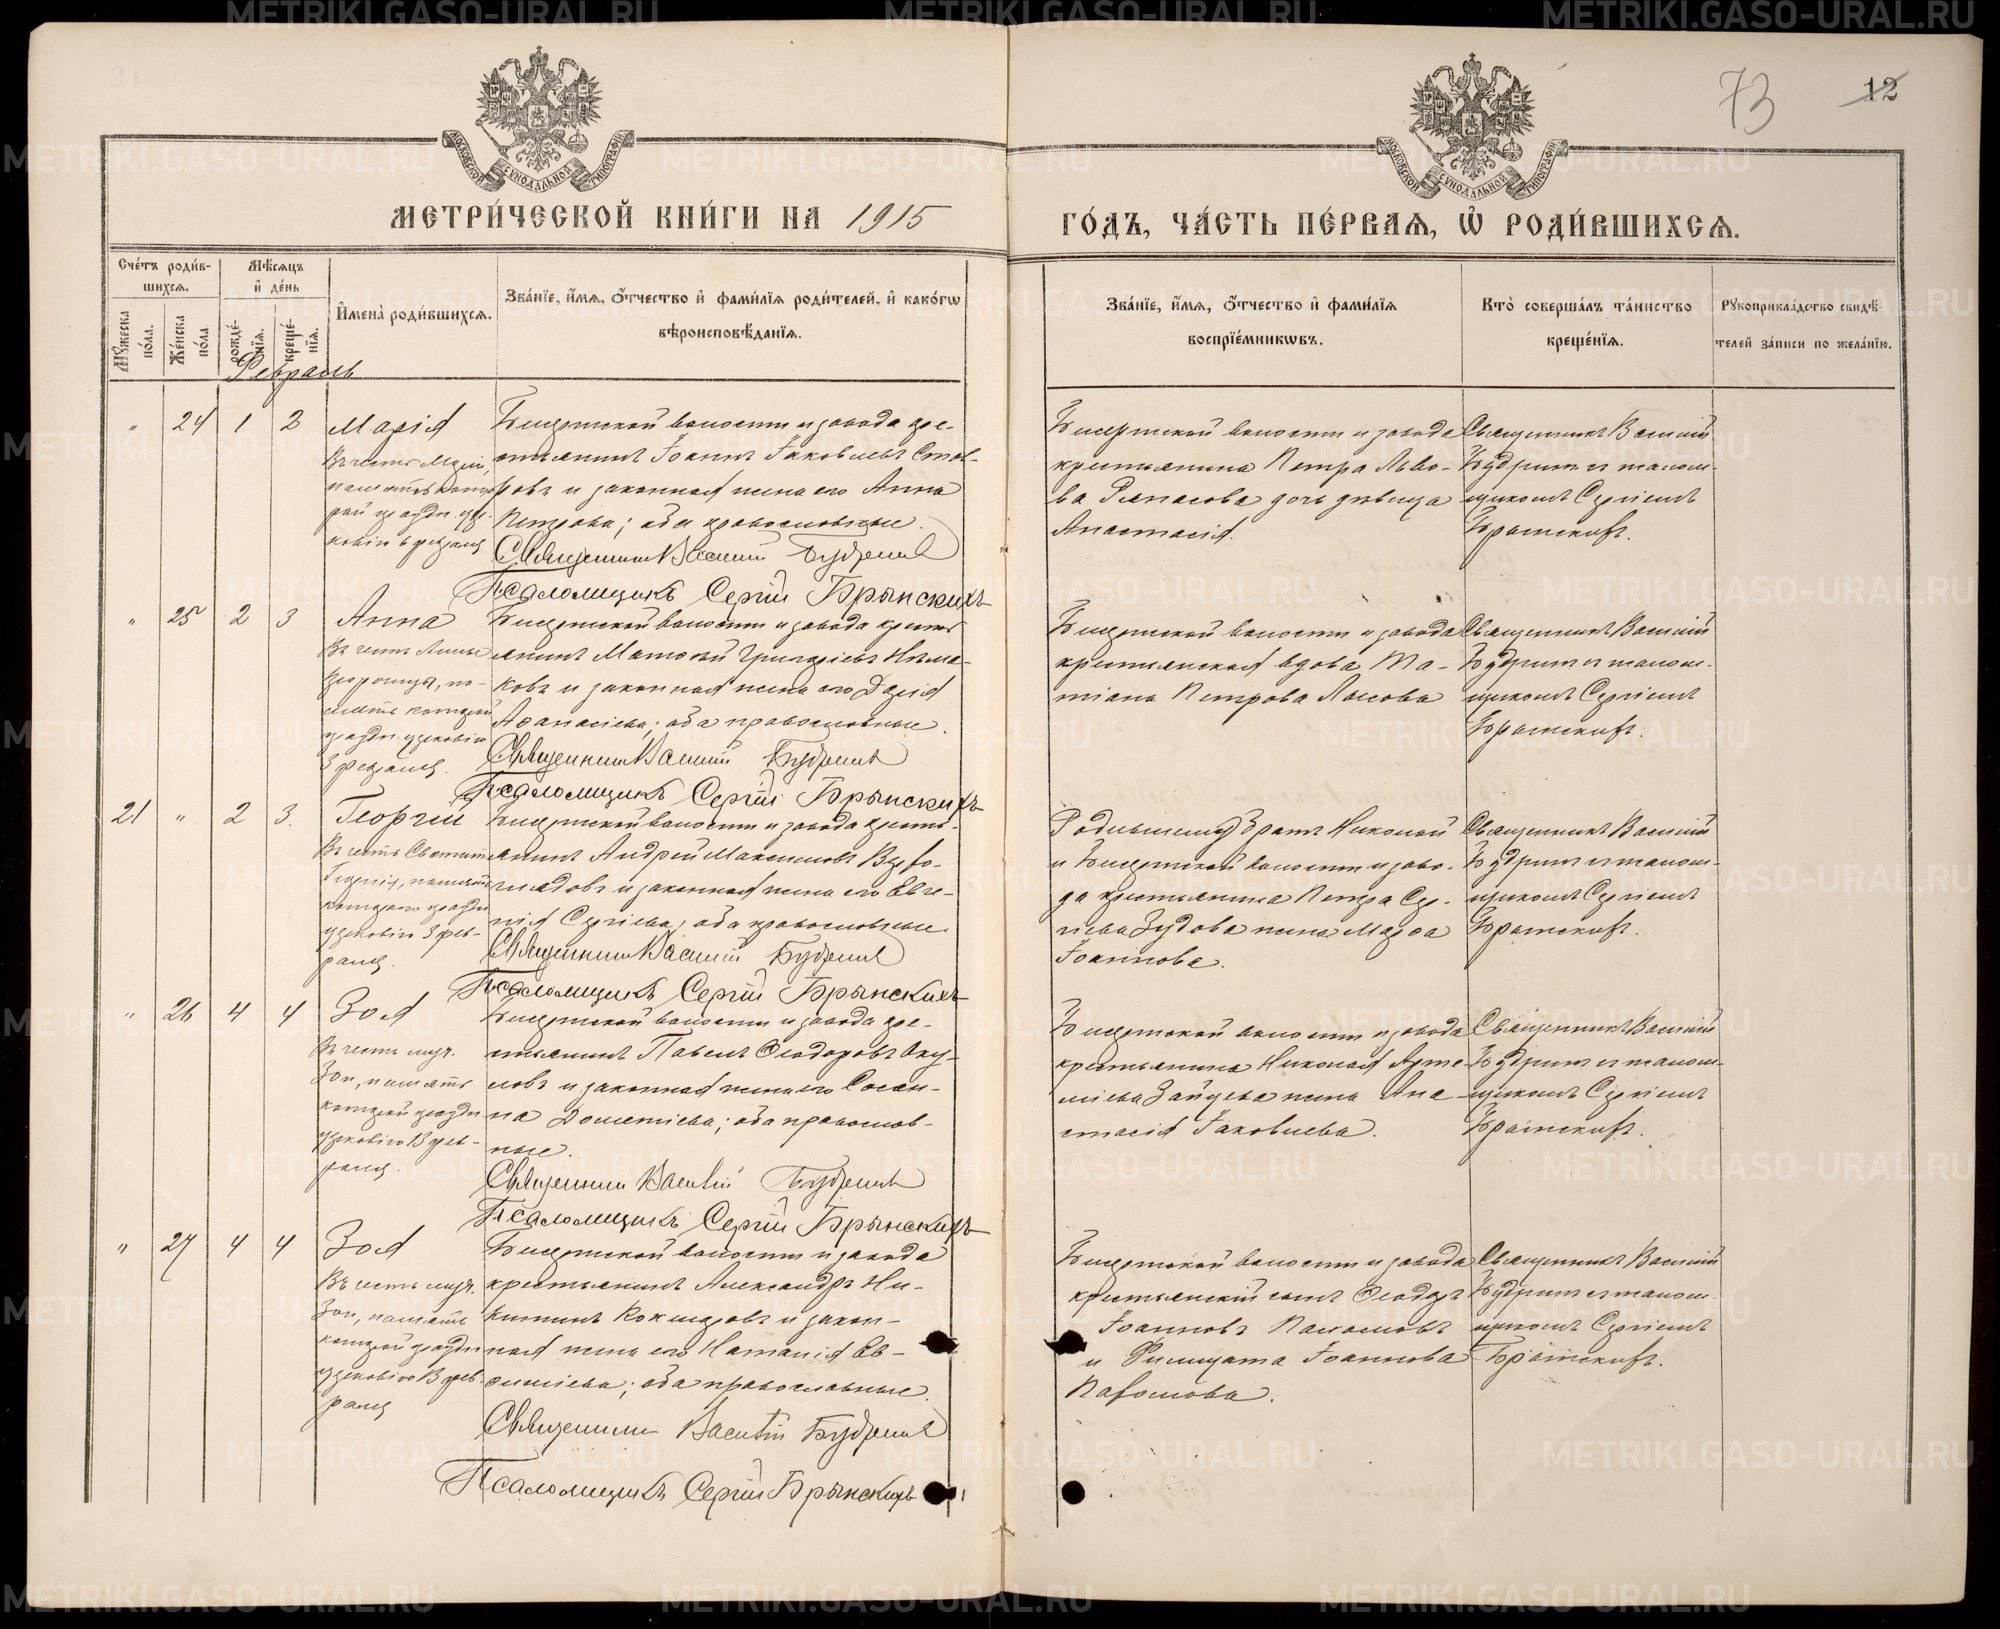 73
12
МОСКОВСКОЙ СУНОДАЛЬНОЙ ТИПОГРАФІИ
МОСКОВСКОЙ СУНОДАЛЬНОЙ ТИПОГРАФІИ
МЕТРИ́ЧЕСКОЙ КНИ́ГИ НА 1915
ГО́ДЪ, ЧА́СТЬ ПЕ́РВАѦ, Ѡ҆ РОДИ́ВШИХСѦ.
Сче́тъ роди́в-
шихсѧ.
Мꙋ́жеска по́ла.
Же́нска по́ла.
Мѣ́сѧцъ и҆ де́нь
рожде́нїѧ.
креще́нїѧ.
И҆мена̀ роди́вшихсѧ.
Зва́нїе, и҆́мѧ, ѻ҆́тчество и҆ фами́лїѧ роди́телей, и҆ како́гѡ
вѣроисповѣ́данїѧ.
Зва́нїе, и҆́мѧ, ѻ҆́тчество и҆ фами́лїѧ
воспрїе́мникѡвъ.
Кто̀ соверша́лъ та́инство
креще́нїѧ.
Рꙋкоприкла́дство свидѣ́-
телей за́писи по жела́нїю.
Февраль
" 24 1 2 Марія
Въ честь Маріи,
память кото-
рой праздн. цер-
ковію 6 февраля
Бисертской волости и завода кре-
стьянинъ Іоаннъ Іаковлевъ
и законная жена его Анна
Петрова; оба православные.
Священникъ Василій Будринъ
Псаломщикъ Сергій Брынскихъ
Бисертской волости и завода
крестьянина Петра Льво-
ва дочь дѣвица
Анастасія.
Священникъ Василій
Будринъ съ псалом-
щикомъ Сергіемъ
Брынскихъ.
" 25 2 3 Анна
Въ честь Анны
Пророчицы, па-
мять которой
праздн. церковію
3 февраля.
Бисертской волости и завода кресть-
янинъ Матѳей Григоріевъ
и законная жена его Дарія
Аѳанасіева; оба православные.
Священникъ Василій Будринъ
Псаломщикъ Сергій Брынскихъ
Бисертской волости и завода
крестьянская вдова Та-
тіана Петрова
Священникъ Василій
Будринъ съ псалом-
щикомъ Сергіемъ
Брынскихъ.
21 " 2 3. Георгій
Въ честь
Георгія, память
котораго праздн.
церковію 3 фев-
раля.
Бисертской волости и завода кресть-
янинъ Андрей Максимовъ
и законная жена его Евге-
нія Сергіева; оба православные.
Священникъ Василій Будринъ
Псаломщикъ Сергій Брынскихъ
Родившемуся братъ Николай
и Бисертской волости и заво-
да крестьянина Петра Сер-
гіева Зудова жена Марѳа
Іоаннова.
Священникъ Василій
Будринъ съ псалом-
щикомъ Сергіемъ
Брынскихъ.
" 26 4 4 Зоя
Въ честь муч.
Зои, память
которой праздн.
церковію 13 фев-
раля.
Бисертской волости и завода кре-
стьянинъ Павелъ Ѳеодоровъ Оку-
ловъ и законная жена его Сосан-
на Дометіева; оба православ-
ные.
Священникъ Василій Будринъ
Псаломщикъ Сергій Брынскихъ
Бисертской волости и завода
крестьянина Николая Арте-
міева Зайцева жена Ана-
стасія Іаковлева.
Священникъ Василій
Будринъ съ псалом-
щикомъ Сергіемъ
Брынскихъ.
" 27 4 4 Зоя
Въ честь муч.
Зои, память
которой праздн.
церковію 13 фев-
раля
Бисертской волости и завода
крестьянинъ Александръ Ни-
китинъ Кокшаровъ и закон-
ная жена его Наталія Ев-
ѳиміева; оба православные.
Священникъ Василій Будринъ
Псаломщикъ Сергій Брынскихъ
Бисертской волости и завода
крестьянскій сынъ Ѳеодоръ
Іоанновъ Пахомовъ
и Филицата Іоаннова
Пахомова.
Священникъ Василій
Будринъ съ псалом-
щикомъ Сергіемъ
Брынскихъ.
METRIKI.GASO-URAL.RU